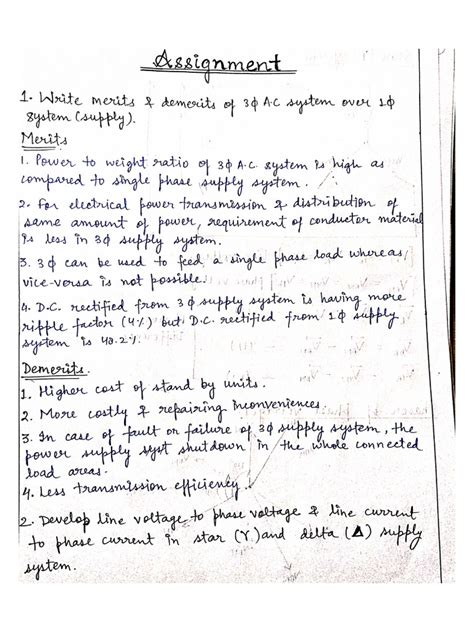 Assignment
1. Write merits & demerits of 3ϕ A.C system over 1ϕ
system (supply).
Merits
1. Power to weight ratio of 3ϕ A.C. system is high as
compared to single phase supply system.
2. For electrical power transmission & distribution of
same amount of power, requirement of conductor material
is less in 3ϕ supply system.
3. 3ϕ can be used to feed a single phase load whereas
vice-versa is not possible.
4. D.C. rectified from 3ϕ supply system is having more
ripple factor (4%) but D.C. rectified from 1ϕ supply
system is 48.2%.
Demerits.
1. Higher cost of stand by units.
2. More costly & repairing inconveniences.
3. In case of fault or failure of 3ϕ supply system, the
power supply syst shutdown in the whole connected
load areas.
4. Less transmission efficiency.
2. Develop line voltage to phase voltage & line current
to phase current in star (Y) and delta (Δ) supply
system.